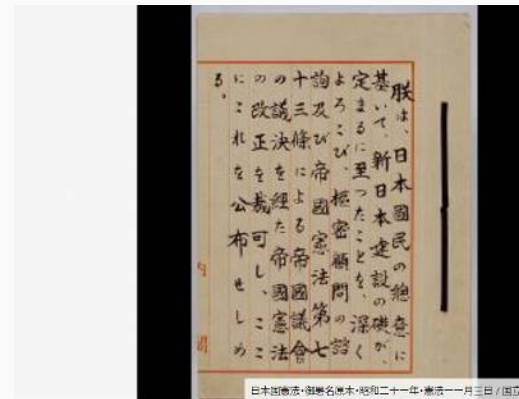 朕は、日本國民の總意に
基いて、新日本建設の礎が、
定まるに至つたことを、深く
よろこび、樞密顧問の諮
詢及び帝國憲法第七
十三條による帝國議會
の議決を經た帝國憲法
の改正を裁可し、ここ
にこれを公布せしめ
る。
内閣
日本国憲法・御署名原本・昭和二十一年・憲法一一月三日 / 国立